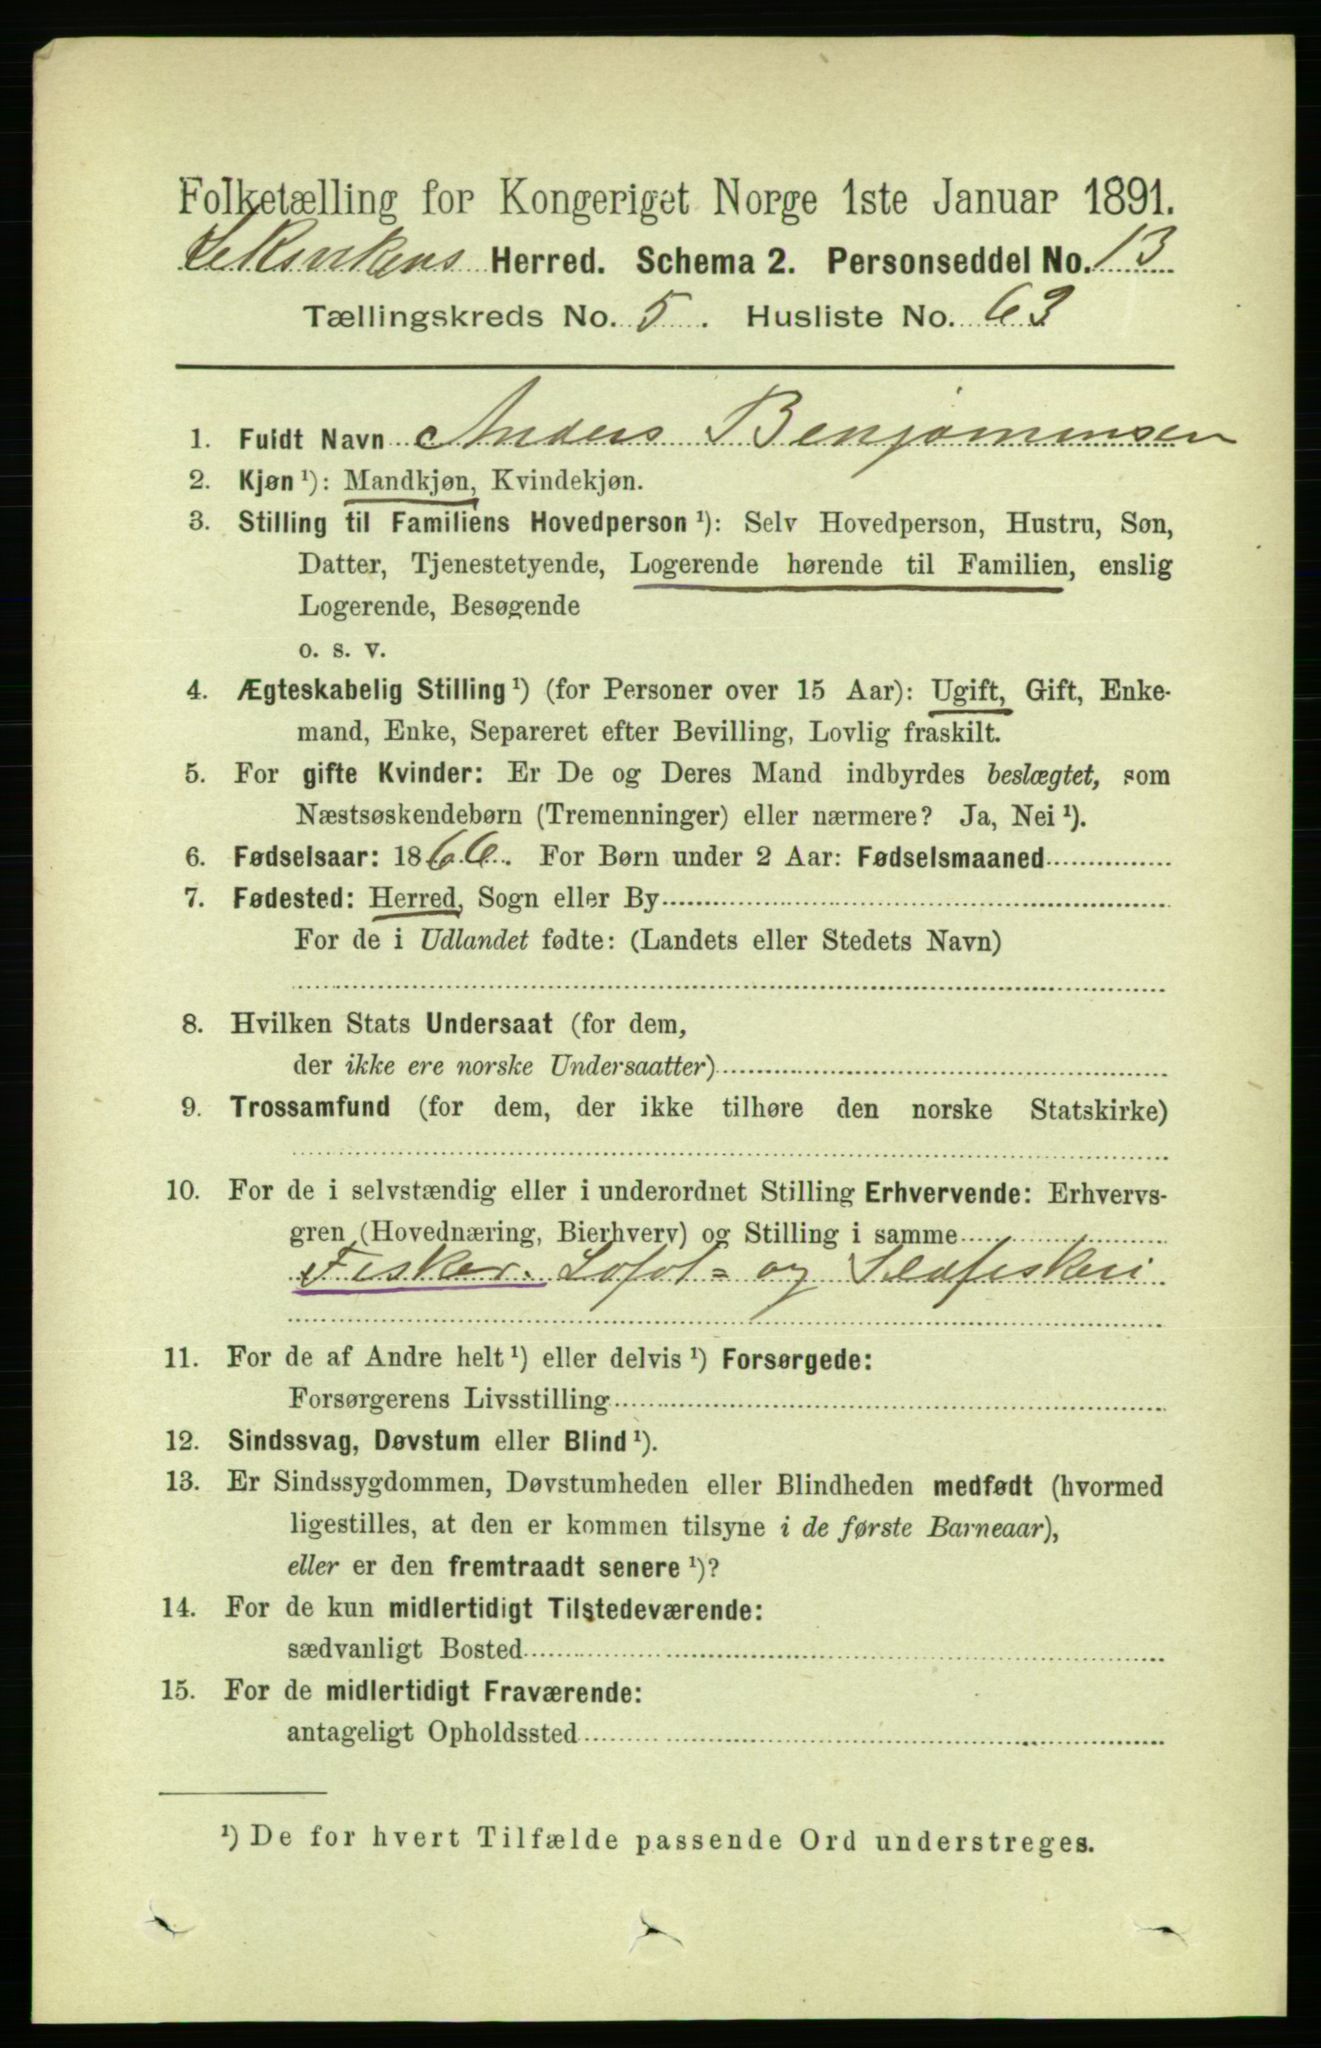 Folketælling for Kongeriget Norge 1ste Januar 1891.
Herred. Schema 2. Personseddel No. 13
Tællingskreds No. 5. Husliste No. 63
1. Fuldt Navn Anders Benjaminsen
2. Kjøn ¹): Mandkjøn, Kvindekjøn.
3. Stilling til Familiens Hovedperson ¹): Selv Hovedperson, Hustru, Søn,
Datter, Tjenestetyende, Logerende hørende til Familien, enslig
Logerende, Besøgende
o. s. v.
4. Ægteskabelig Stilling ¹) (for Personer over 15 Aar): Ugift, Gift, Enke-
mand, Enke, Separeret efter Bevilling, Lovlig fraskilt.
5. For gifte Kvinder: Er De og Deres Mand indbyrdes beslægtet, som
Næstsøskendebørn (Tremenninger) eller nærmere? Ja, Nei ¹).
6. Fødselsaar: 1866. For Børn under 2 Aar: Fødselsmaaned
7. Fødested: Herred, Sogn eller By
For de i Udlandet fødte: (Landets eller Stedets Navn)
8. Hvilken Stats Undersaat (for dem,
der ikke ere norske Undersaatter)
9. Trossamfund (for dem, der ikke tilhøre den norske Statskirke)
10. For de i selvstændig eller i underordnet Stilling Erhvervende: Erhvervs-
gren (Hovednæring, Bierhverv) og Stilling i samme
Fisker. Lofot- og Seafiskeri
11. For de af Andre helt ¹) eller delvis ¹) Forsørgede:
Forsørgerens Livsstilling
12. Sindssvag, Døvstum eller Blind ¹).
13. Er Sindssygdommen, Døvstumheden eller Blindheden medfødt (hvormed
ligestilles, at den er kommen tilsyne i de første Barneaar),
eller er den fremtraadt senere ¹)?
14. For de kun midlertidigt Tilstedeværende:
sædvanligt Bosted
15. For de midlertidigt Fraværende:
antageligt Opholdssted
¹) De for hvert Tilfælde passende Ord understreges.